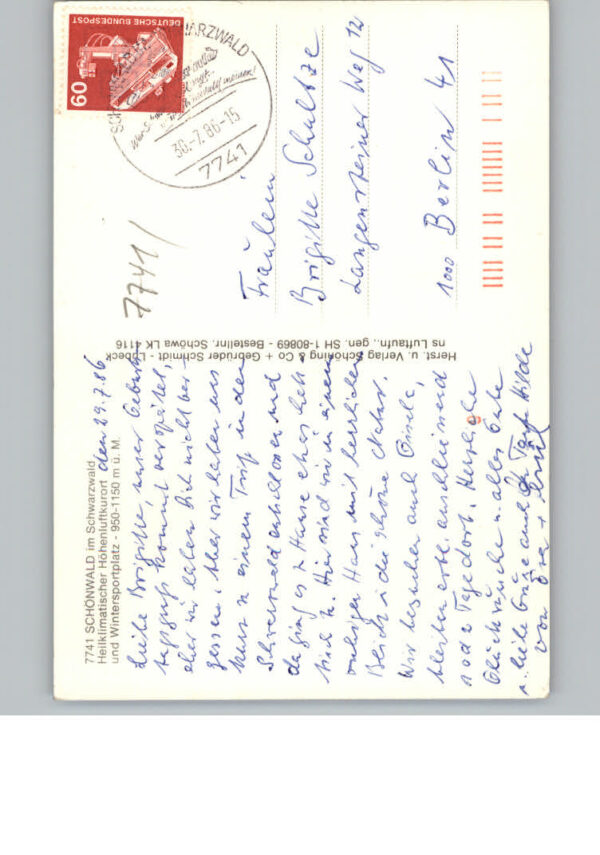 7741 SCHÖNWALD im Schwarzwald
Heilklimatischer Höhenluftkurort
und Wintersportplatz - 950-1150 m ü. M.
den 29.7.86
Liebe Brigitte, unser Geburts
tagsgruß kommt verspätet,
aber wir haben Dich nicht ver-
gessen. Aber wir haben uns
kurz zu einem Trip in den
Schwarzwald entschlossen und
da ging es z Hause etwas hek-
tisch zu. Hier sind wir in einem
ruhigen Haus mit herrlichem
Blick i die schöne Natur.
Wir besuchen auch Gisela,
bleiben evtl. anschließend
1 oder 2 Tage dort. Herzliche
Glückwünsche u. alles Gute
u. liebe Grüße auch an
von + 
Herst. u. Verlag Schöning & Co + Gebrüder Schmidt - Lübeck
ns Luftaufn., gen. SH 1-80869 - Bestellnr. Schöwa LK 4116
7741/
DEUTSCHE BUNDESPOST
60
SCHWARZWALD
30.-7.86-15
7741
Fräulein
Brigitte Schultze
Langensteiner Weg 12
1000 Berlin 41